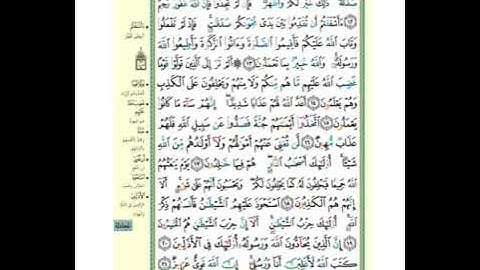 صَدَقَةً ذَٰلِكَ خَيْرٌ لَّكُمْ وَأَطْهَرُ فَإِن لَّمْ تَجِدُوا۟ فَإِنَّ ٱللَّهَ غَفُورٌ رَّحِيمٌ
١٢ ءَأَشْفَقْتُمْ أَن تُقَدِّمُوا۟ بَيْنَ يَدَىْ نَجْوَىٰكُمْ صَدَقَٰتٍ فَإِذْ لَمْ تَفْعَلُوا۟
وَتَابَ ٱللَّهُ عَلَيْكُمْ فَأَقِيمُوا۟ ٱلصَّلَوٰةَ وَءَاتُوا۟ ٱلزَّكَوٰةَ وَأَطِيعُوا۟ ٱللَّهَ
وَرَسُولَهُۥ وَٱللَّهُ خَبِيرٌۢ بِمَا تَعْمَلُونَ ١٣ أَلَمْ تَرَ إِلَى ٱلَّذِينَ تَوَلَّوْا۟ قَوْمًا
غَضِبَ ٱللَّهُ عَلَيْهِم مَّا هُم مِّنكُمْ وَلَا مِنْهُمْ وَيَحْلِفُونَ عَلَى ٱلْكَذِبِ
وَهُمْ يَعْلَمُونَ ١٤ أَعَدَّ ٱللَّهُ لَهُمْ عَذَابًا شَدِيدًا إِنَّهُمْ سَآءَ مَا كَانُوا۟
يَعْمَلُونَ ١٥ ٱتَّخَذُوٓا۟ أَيْمَٰنَهُمْ جُنَّةً فَصَدُّوا۟ عَن سَبِيلِ ٱللَّهِ فَلَهُمْ
عَذَابٌ مُّهِينٌ ١٦ لَّن تُغْنِىَ عَنْهُمْ أَمْوَٰلُهُمْ وَلَآ أَوْلَٰدُهُم مِّنَ ٱللَّهِ
شَيْـًٔا أُو۟لَٰٓئِكَ أَصْحَٰبُ ٱلنَّارِ هُمْ فِيهَا خَٰلِدُونَ ١٧ يَوْمَ يَبْعَثُهُمُ
ٱللَّهُ جَمِيعًا فَيَحْلِفُونَ لَهُۥ كَمَا يَحْلِفُونَ لَكُمْ وَيَحْسَبُونَ أَنَّهُمْ عَلَىٰ شَىْءٍ أَلَآ
إِنَّهُمْ هُمُ ٱلْكَٰذِبُونَ ١٨ ٱسْتَحْوَذَ عَلَيْهِمُ ٱلشَّيْطَٰنُ فَأَنسَىٰهُمْ ذِكْرَ
ٱللَّهِ أُو۟لَٰٓئِكَ حِزْبُ ٱلشَّيْطَٰنِ أَلَآ إِنَّ حِزْبَ ٱلشَّيْطَٰنِ هُمُ ٱلْخَٰسِرُونَ
١٩ إِنَّ ٱلَّذِينَ يُحَآدُّونَ ٱللَّهَ وَرَسُولَهُۥٓ أُو۟لَٰٓئِكَ فِى ٱلْأَذَلِّينَ ٢٠
كَتَبَ ٱللَّهُ لَأَغْلِبَنَّ أَنَا۠ وَرُسُلِىٓ إِنَّ ٱللَّهَ قَوِىٌّ عَزِيزٌ ٢١
المجادلة